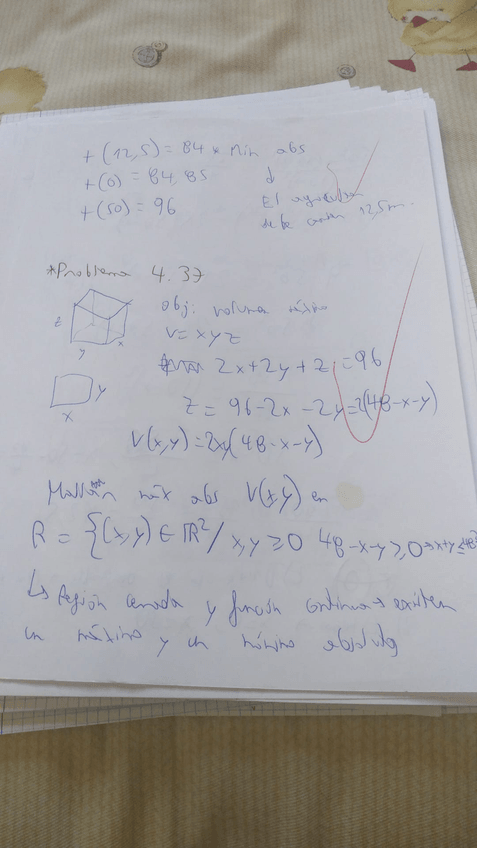 t(12,5) = 84 * Min abs
t(0) = 84,85
t(50) = 96
El agricultor
debe 12,5 m.
*Problema 4.37
obj: volumen máximo
z
V = xyz
y x
2x + 2y + z = 96
y
z = 96 - 2x - 2y = 2(48 - x - y)
x
V(x,y) = 2xy(48 - x - y)
máx abs V(x,y) en
R = {(x,y) ∈ ℝ² / x,y ≥ 0 48 - x - y ≥ 0 → x+y ≤ 48}
↳ Región cerrada y función continua → existen
un máximo y un mínimo absoluto